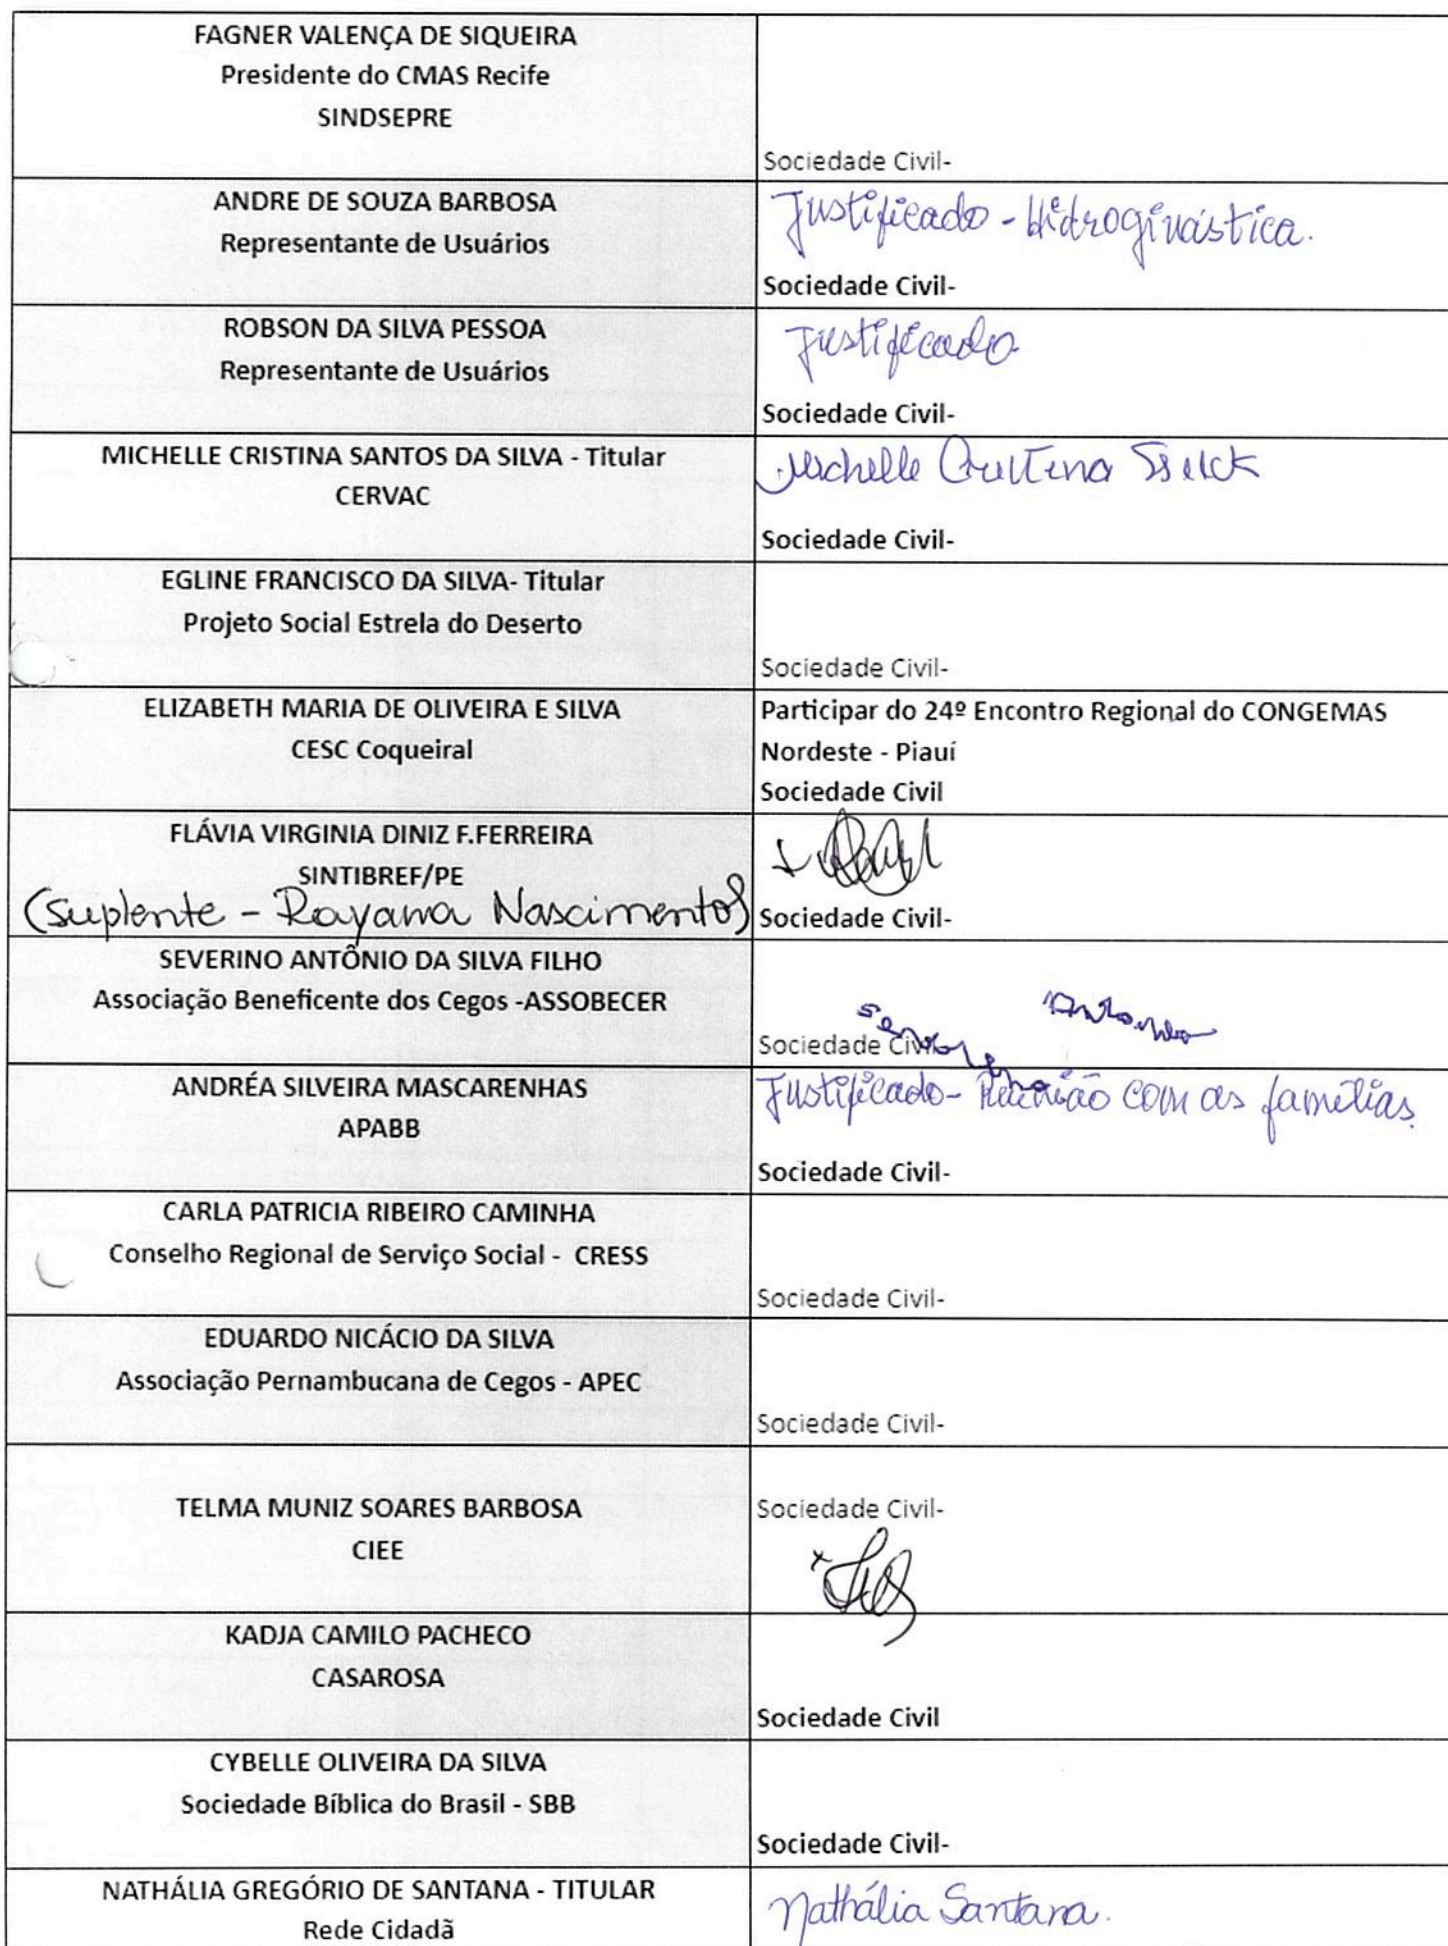 FAGNER VALENÇA DE SIQUEIRA
Presidente do CMAS Recife
SINDSEPRE
Sociedade Civil-
ANDRE DE SOUZA BARBOSA
Representante de Usuários
Justificado - Hidroginástica.
Sociedade Civil-
ROBSON DA SILVA PESSOA
Representante de Usuários
Justificado
Sociedade Civil-
MICHELLE CRISTINA SANTOS DA SILVA - Titular
CERVAC
Michelle Cristina
Sociedade Civil-
EGLINE FRANCISCO DA SILVA- Titular
Projeto Social Estrela do Deserto
Sociedade Civil-
ELIZABETH MARIA DE OLIVEIRA E SILVA
CESC Coqueiral
Participar do 24º Encontro Regional do CONGEMAS
Nordeste - Piauí
Sociedade Civil
FLÁVIA VIRGINIA DINIZ F.FERREIRA
SINTIBREF/PE
(Suplente - Rayana Nascimento)
Sociedade Civil-
SEVERINO ANTÔNIO DA SILVA FILHO
Associação Beneficente dos Cegos -ASSOBECER
Antonio
Sociedade Civil-
ANDRÉA SILVEIRA MASCARENHAS
APABB
Justificado- Reunião com as famílias.
Sociedade Civil-
CARLA PATRICIA RIBEIRO CAMINHA
Conselho Regional de Serviço Social - CRESS
Sociedade Civil-
EDUARDO NICÁCIO DA SILVA
Associação Pernambucana de Cegos - APEC
Sociedade Civil-
TELMA MUNIZ SOARES BARBOSA
CIEE
Sociedade Civil-
KADJA CAMILO PACHECO
CASAROSA
Sociedade Civil
CYBELLE OLIVEIRA DA SILVA
Sociedade Bíblica do Brasil - SBB
Sociedade Civil-
NATHÁLIA GREGÓRIO DE SANTANA - TITULAR
Rede Cidadã
Nathália Santana.